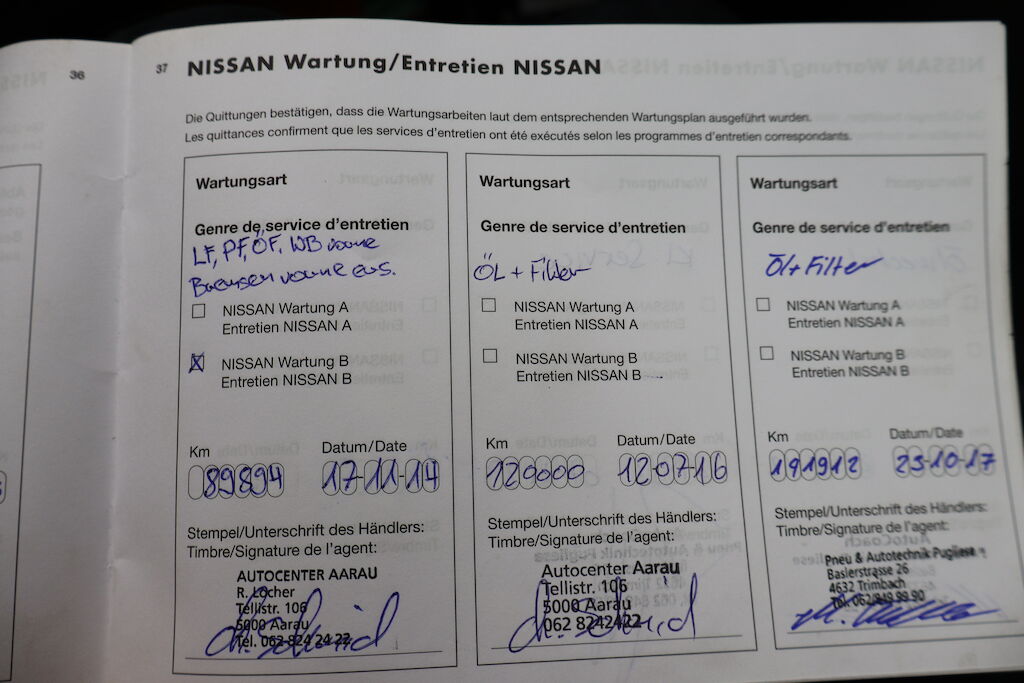 36
37 NISSAN Wartung/Entretien NISSAN
Die Quittungen bestätigen, dass die Wartungsarbeiten laut dem entsprechenden Wartungsplan ausgeführt wurden.
Les quittances confirment que les services d'entretien ont été exécutés selon les programmes d'entretien correspondants.
Wartungsart
Genre de service d'entretien
LF, PF, ÖF, WB vorne
Bremsen vorne ers.
NISSAN Wartung A
Entretien NISSAN A
NISSAN Wartung B
Entretien NISSAN B
Km Datum/Date
89894 17-11-14
Stempel/Unterschrift des Händlers:
Timbre/Signature de l'agent:
AUTOCENTER AARAU
R. Locher
Tellistr. 106
5000 Aarau
Tel. 062 824 24 22
Wartungsart
Genre de service d'entretien
ÖL + Filter
NISSAN Wartung A
Entretien NISSAN A
NISSAN Wartung B
Entretien NISSAN B
Km Datum/Date
120000 12 07 16
Stempel/Unterschrift des Händlers:
Timbre/Signature de l'agent:
Autocenter Aarau
Tellistr. 106
5000 Aarau
062 8242422
Wartungsart
Genre de service d'entretien
Öl+Filter
NISSAN Wartung A
Entretien NISSAN A
NISSAN Wartung B
Entretien NISSAN B
Km Datum/Date
191912 23-10-17
Stempel/Unterschrift des Händlers:
Timbre/Signature de l'agent:
Pneu & Autotechnik Pugliese
Baslerstrasse 26
4632 Trimbach
Tel. 062/849 99 90